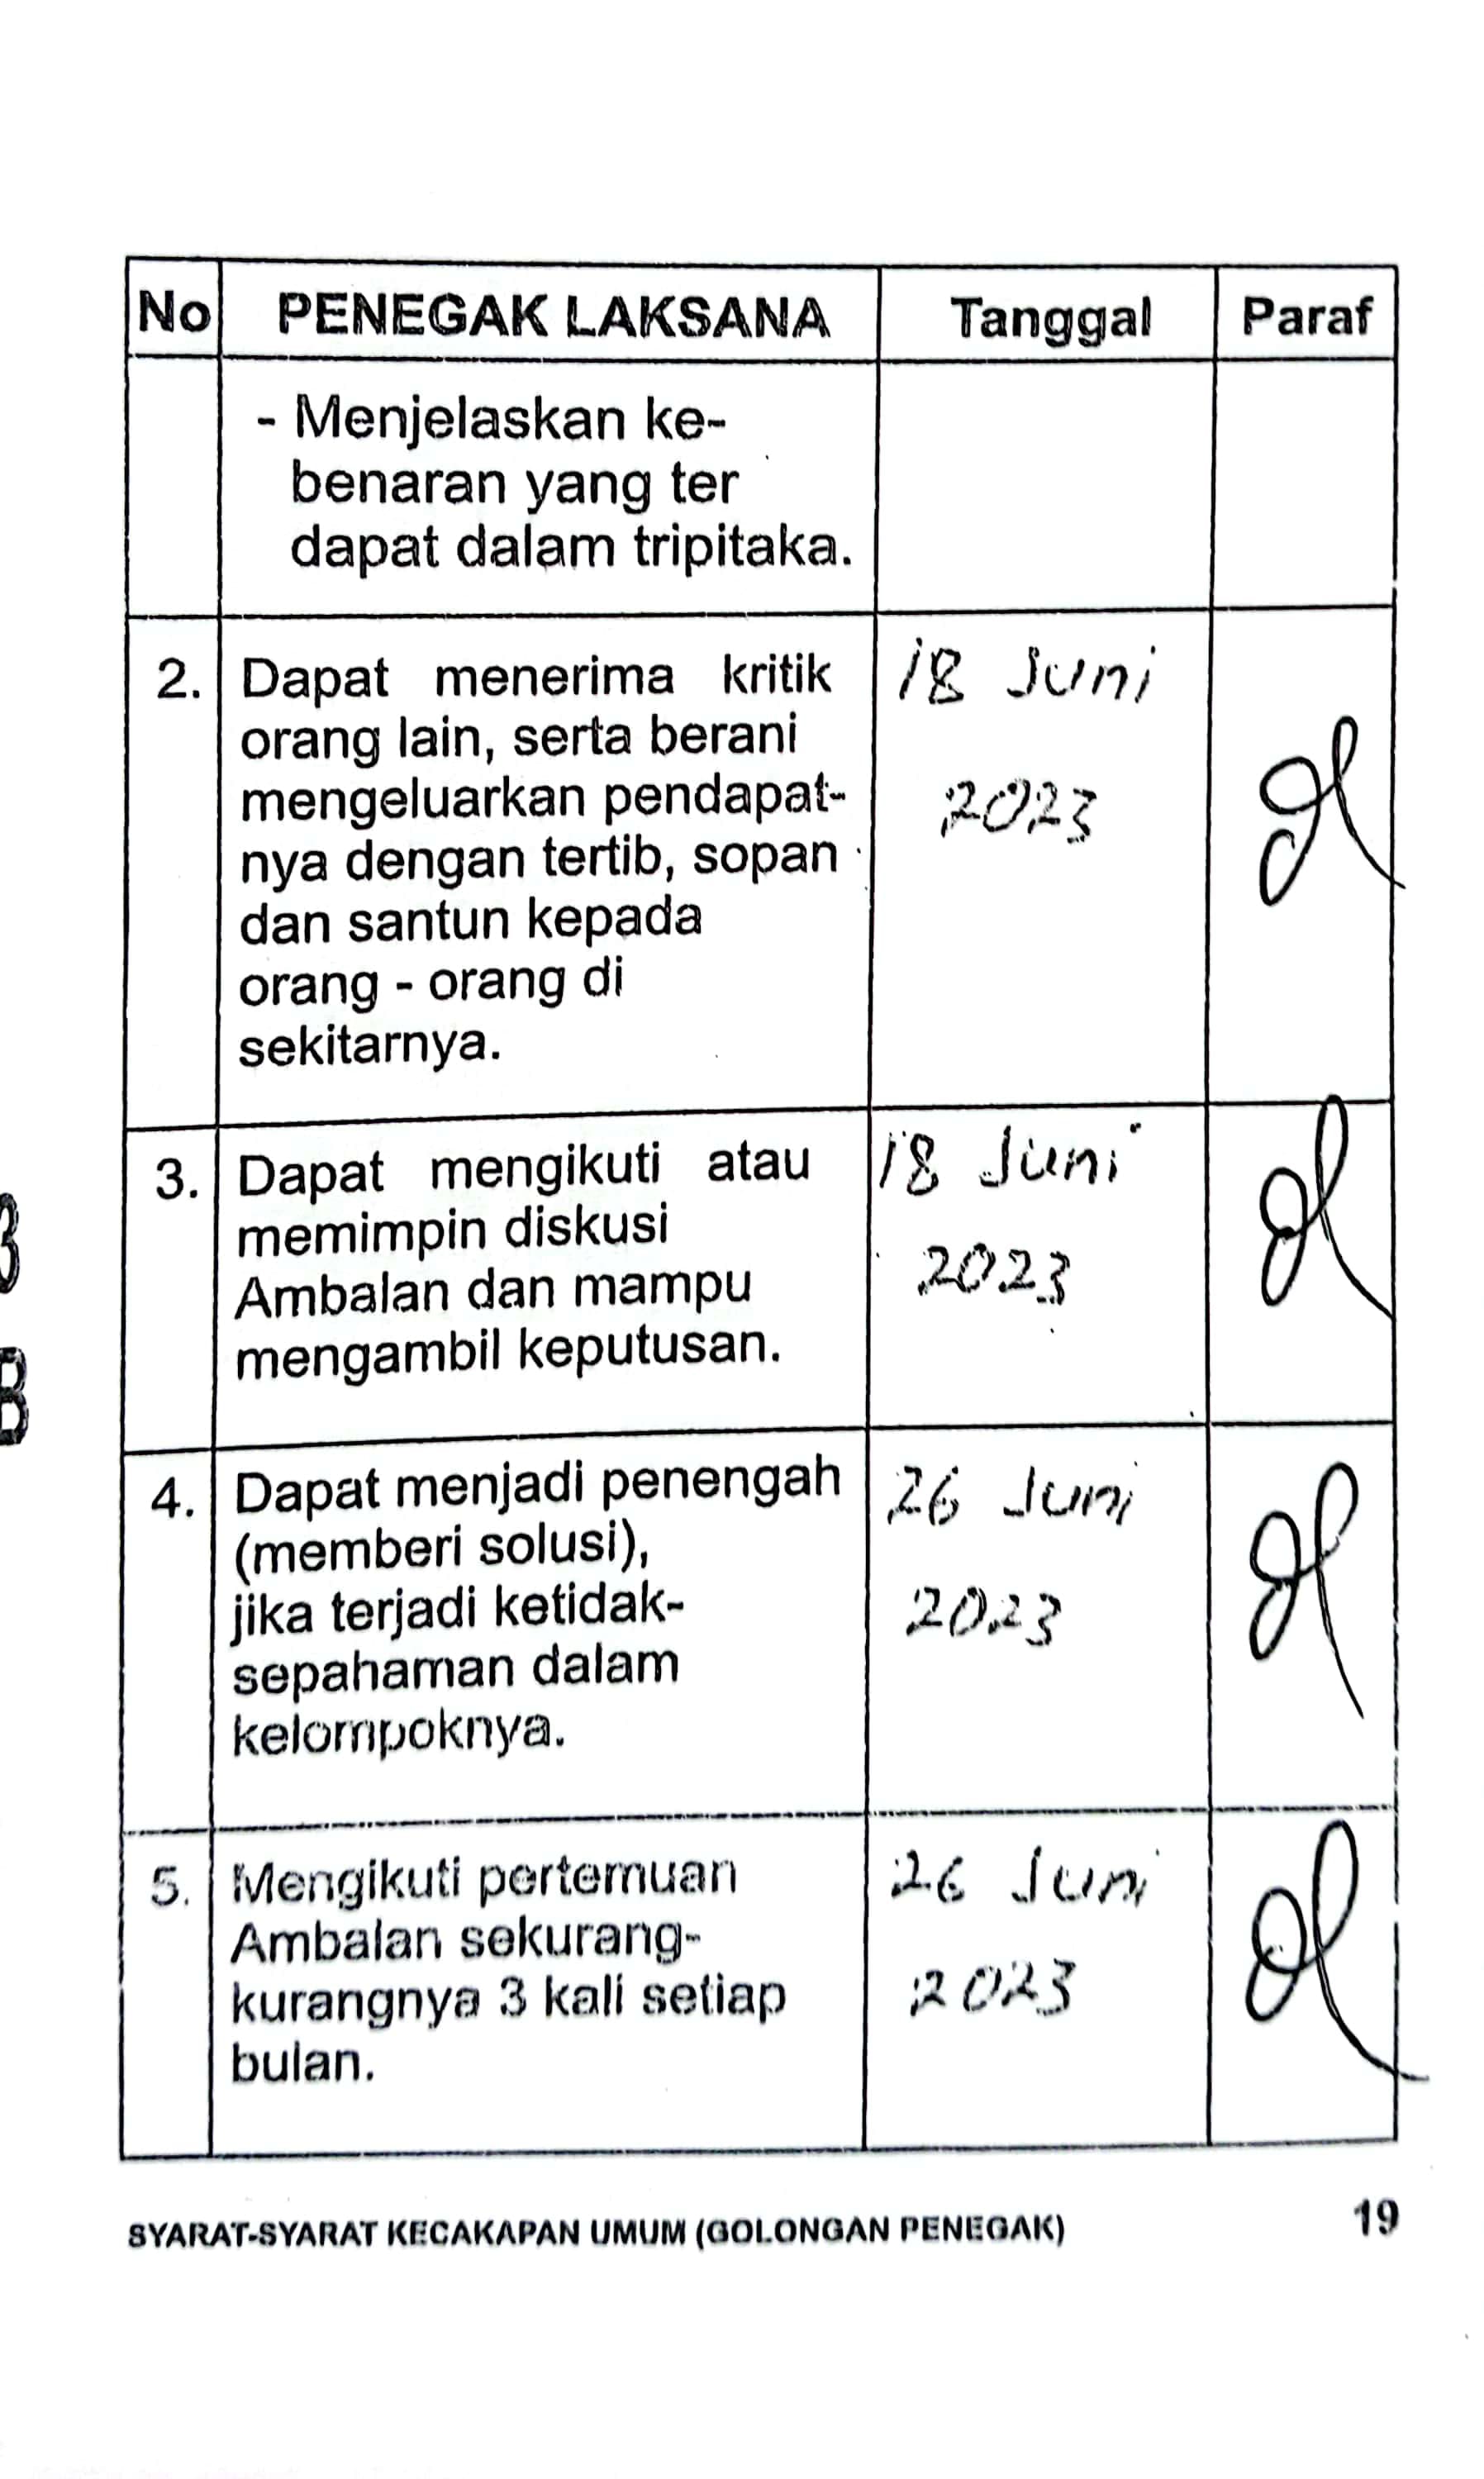 No PENEGAK LAKSANA Tanggal Paraf
- Menjelaskan ke-
benaran yang ter
dapat dalam tripitaka.
2. Dapat menerima kritik 18 Juni
orang lain, serta berani
mengeluarkan pendapat- 2023
nya dengan tertib, sopan
dan santun kepada
orang - orang di
sekitarnya.
3. Dapat mengikuti atau 18 Juni
memimpin diskusi
Ambalan dan mampu 2023
mengambil keputusan.
4. Dapat menjadi penengah 26 Juni
(memberi solusi),
jika terjadi ketidak- 2023
sepahaman dalam
kelompoknya.
5. Mengikuti pertemuan 26 Juni
Ambalan sekurang-
kurangnya 3 kali setiap 2023
bulan.
SYARAT-SYARAT KECAKAPAN UMUM (GOLONGAN PENEGAK) 19